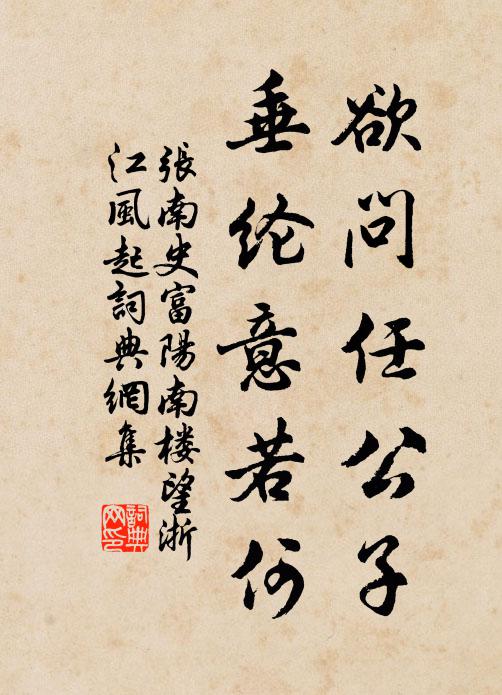 欲问任公子
垂纶意若何
張南史富陽南楼望浙
江風起詞典網集
詞典
网印